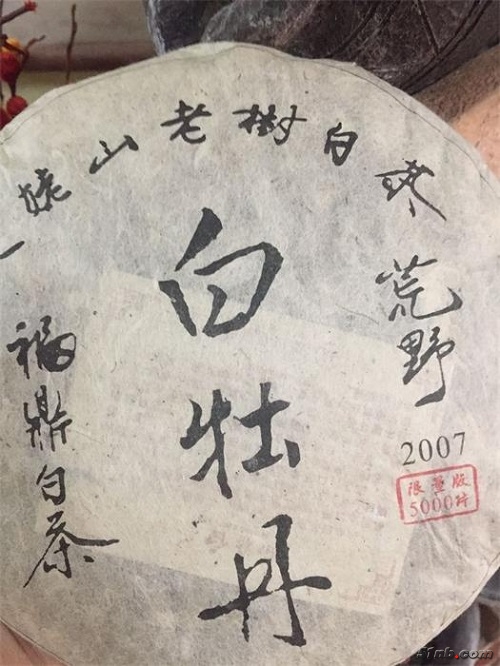 姥山老樹白茶
白牡丹
荒野
2007
限量版
5000片
福鼎白茶